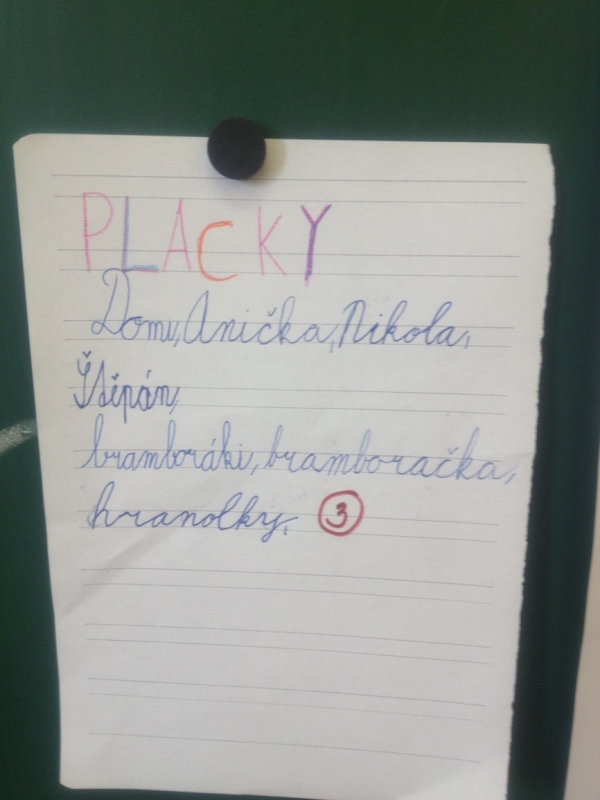 PLACKY
Domi, Anička, Nikola,
Štěpán,
bramboráki, bramboračka,
hranolky, 3